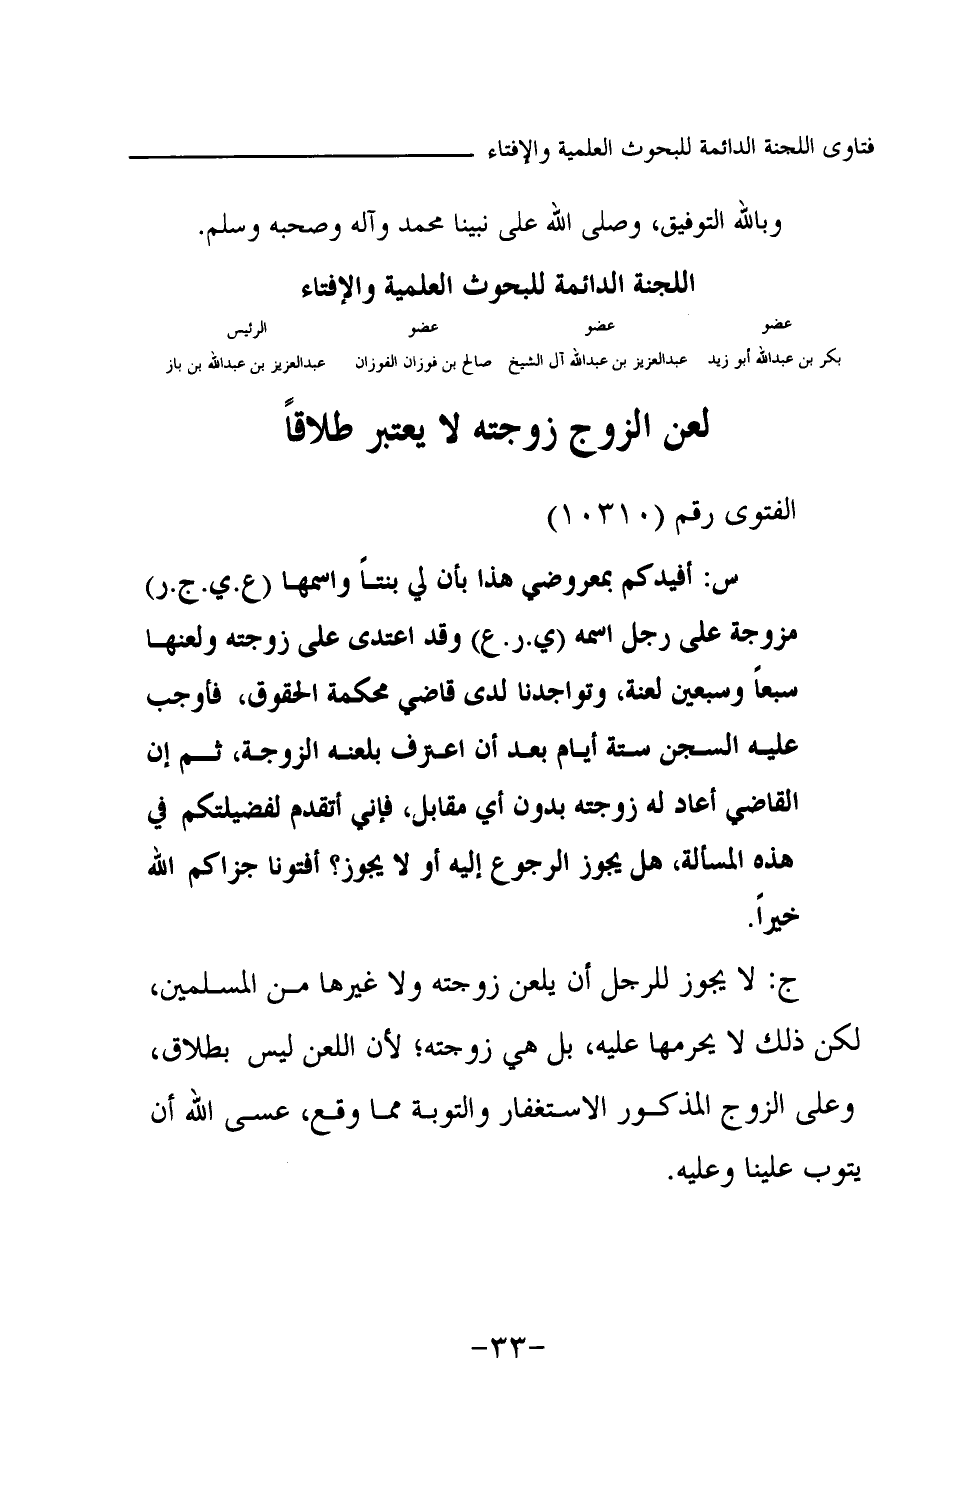 فتاوى اللجنة الدائمة للبحوث العلمية والإفتاء
وبالله التوفيق، وصلى الله على نبينا محمد وآله وصحبه وسلم.
اللجنة الدائمة للبحوث العلمية والإفتاء
عضو عضو عضو الرئيس
بكر بن عبدالله أبو زيد عبدالعزيز بن عبدالله آل الشيخ صالح بن فوزان الفوزان عبدالعزيز بن عبدالله بن باز
لعن الزوج زوجته لا يعتبر طلاقاً
الفتوى رقم (١٠٣١٠)
س: أفيدكم بمعروضي هذا بأن لي بنتاً واسمها (ع.ي.ج.ر)
مزوجة على رجل اسمه (ي.ر.ع) وقد اعتدى على زوجته ولعنها
سبعاً وسبعين لعنة، وتواجدنا لدى قاضي محكمة الحقوق، فأوجب
عليه السجن ستة أيام بعد أن اعترف بلعنه الزوجة، ثم إن
القاضي أعاد له زوجته بدون أي مقابل، فإني أتقدم لفضيلتكم في
هذه المسألة، هل يجوز الرجوع إليه أو لا يجوز؟ أفتونا جزاكم الله
خيراً.
ج: لا يجوز للرجل أن يلعن زوجته ولا غيرها من المسلمين،
لكن ذلك لا يحرمها عليه، بل هي زوجته؛ لأن اللعن ليس بطلاق،
وعلى الزوج المذكور الاستغفار والتوبة مما وقع، عسى الله أن
يتوب علينا وعليه.
-٣٣-